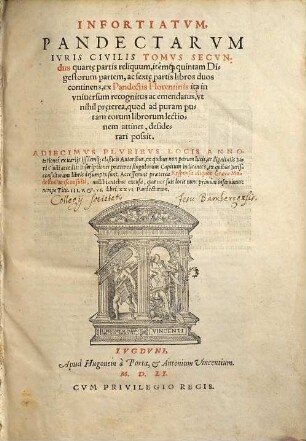 INFORTIATVM,
PANDECTARVM
IVRIS CIVILIS TOMVS SECVN-
dus quartę partis reliquum, itémq; quintam Di-
gestorum partem, ac sextę partis libros duos
continens, ex Pandectis Florentinis ita in
vniuersum recognitus ac emendatus, vt
nihil pręterea, quod ad puram pu-
tam eorum librorum lectio-
nem attinet, deside-
rari possit.
ADIECIMVS PLVRIBVS LOCIS ANNO-
Collegij Societatis Iesu Bambergensis.
VINCENTI
LVGDVNI,
Apud Hugonem à Porta, & Antonium Vincentium.
M. D. LI.
CVM PRIVILEGIO REGIS.